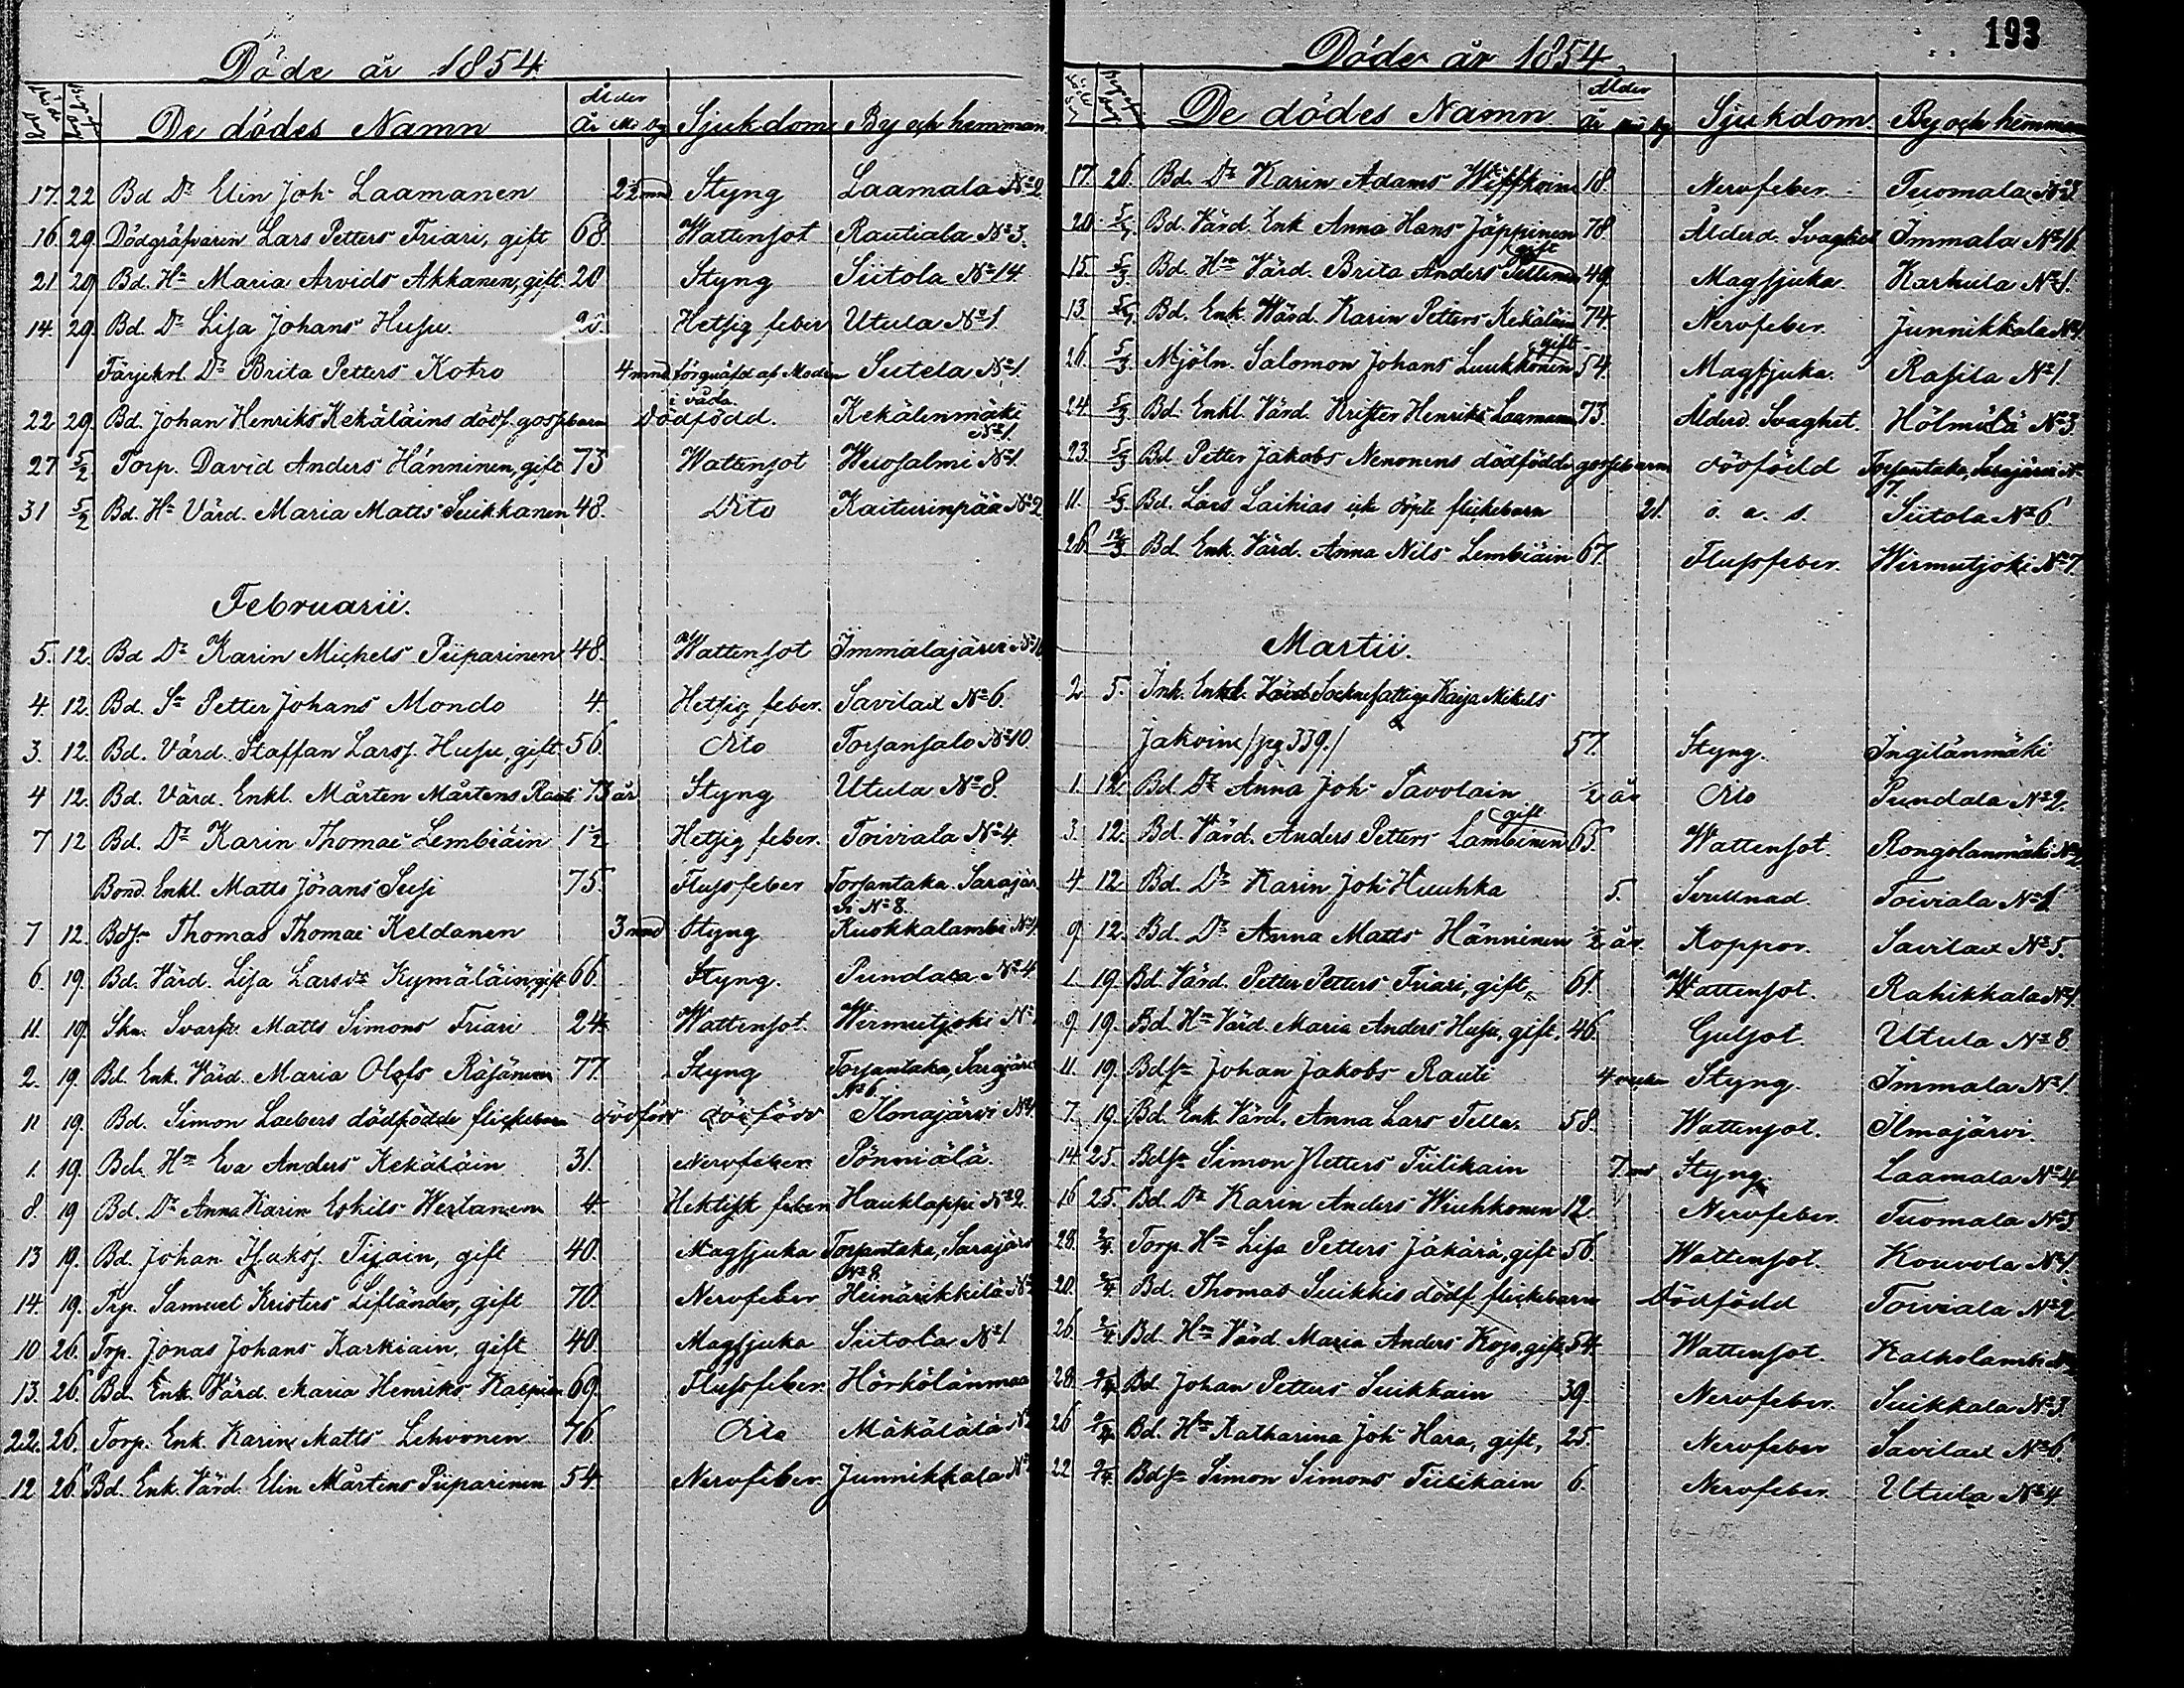 Döde år 1854
Död dag Begraf dag De dödes Namn Ålder År Må Dg Sjukdom By och hemman
17. 22 Bd Dr Elin Joh. Laamanen 2½ mnd Styng Laamala No 2
16. 29. Dödgräfvarin Lars Petters Friari, gift 68. Wattensot Rautiala No 3.
21 29 Bd. Hu Maria Arvids Akkanen, gift. 20 Styng Siitola No 14.
14. 29. Bd. Dr Lisa Johans Husu 20. Hetsig feber Utula No 1.
Färjekrl. Dr Brita Petters Kotro 4 mnd förquäfd af Modren Siitola No 1.
i våda.
22 29. Bd. Johan Henriks Kekäläins dödf. gossebarn dödfödd. Kekälenmäki
No 1.
27 5/2 Torp. David Anders Hänninen, gift 73 Wattensot Wuosalmi No 1.
31 5/2 Bd. Hu Värd. Maria Matts Suikkanen 48. Dito Kaiturinpää No 2
Februarii.
5. 12. Bd Dr Karin Michels Piiparinen 48. Wattensot Immalajärvi No
4. 12. Bd. Sn Petter Johans Mondo 4. Hetsig feber. Savilax No 6.
3. 12. Bd. Värd. Staffan Larss. Husu, gift 56. Dito Torsansalo No 10.
4 12. Bd. Värd. Enkl. Mårten Mårtens Rauti 73 år Styng Utula No 8.
7 12 Bd. Dr Karin Thomae Lembiäin 1½ Hetsig feber. Toiviala No 4.
Bond. Enkl. Matts Jörans Susi 75. Flussfeber Torsantaka. Sarajär
vi No 8.
7 12. Bds. Thomas Thomae Keldanen 3 mnd Styng Ruokkalambi No 1.
6. 19. Bd. Värd. Lisa Larsdr Kymäläin, gift 66. Styng. Pundala No 4
11. 19. Skn. Svarfv. Matts Simons Friari 24. Wattensot. Wirmutjoki No
2. 19. Bd. Enk. Värd. Maria Olofs Räsänen 77. Styng Torsantaka, Sarajärvi
No 6.
11 19. Bd. Simon Laebers dödfödde flickebarn dödfödd dödfödd Ilmajärvi No 4
1. 19. Bd. Hu Eva Anders Kekäläin 31. Nervfeber. Pönniälä.
8. 19 Bd. Dr Anna Karin Eskils Wertanen 4 Hektisk feber Hauklappi No 2.
13 19. Bd. Johan Isakss. Tijain, gift 40. Magsjuka Torsantaka, Sarajärvi
No 8.
14. 19. Trp. Samuel Kristers Lifländer, gift 70. Nervfeber Heinärikkilä No
10 26. Trp. Jonas Johans Karkiain, gift 40. Magsjuka Siitola No 1
13. 26. Bd. Enk. Värd. Maria Henriks 69. Flussfeber. Hörkölänmaa
22. 26. Torp. Enk. Karin Matts Lihvonen 76. Dito Mäkälälä No
12 26 Bd. Enk. Värd. Elin Mårtens Piiparinen 54. Nervfeber. Junnikkala No
193
Döde år 1854.
Död dag Begraf dag De dödes Namn Ålder År Må Dg Sjukdom. By och hemman
17. 26. Bd. Dr Karin Adams 18. Nervfeber. Tuomala No 3.
20. 5/3 Bd. Värd. Enk Anna Hans Jäppinen 78. Ålderd. Svaghet Immala No 11.
15. 5/3. Bd. Hu Värd. Brita Anders Pellinen gift 49. Magsjuka Karhula No 1.
13. 5/3 Bd. Enk. Wärd. Karin Petters Kekäläin 74. Nervfeber. Junnikkala No 4.
26. 5/3 Mjöln. Salomon Johans Luukkonen gift 54. Magsjuka. Rasila No 1.
24. 5/3 Bd. Enkl. Värd. Krister Henriks Laamanen 73. Ålderd. Svaghet. Hölmälä No 3
23. 5/3 Bd Petter Jakobs Nenonens dödfödde gossebarn dödfödd Torsantaka, Sarajärvi No
7.
11. 5/3 Bd. Lars Laihias icke döpte flickebarn 21. o. a. s. Siitola No 6.
26. 12/3 Bd. Enk. Värd. Anna Nils Lembiäin 67. Flussfeber. Wirmutjoki No 7.
Martii.
2. 5. Ink. Enkl. Värd Socknefattige Kaija Mikels
Jakoin /pg 339./ 57. Styng. Ingilänmäki
1. 12. Bd. Dr Anna Joh. Savolain ½ år Dito Pundala No 2.
3. 12. Bd. Värd. Anders Petters Lambinen gift 65. Wattensot. Rongolanmäki No
4. 12 Bd. Dr Karin Joh. Huuhka 5. Svullnad. Toiviala No 1.
9. 12. Bd. Dr Anna Matts Hänninen ½ år. Koppor. Savilax No 5.
1. 19. Bd. Värd. Petter Petters Friari, gift, 61. Wattensot. Rahikkala No 1.
9. 19. Bd. Hu Värd. Maria Anders Husu, gift. 46. Gulsot. Utula No 8.
11. 19. Bdsn Johan Jakobs Rauti 4 veckor Styng. Immala No 1.
7. 19. Bd. Enk. Värd. Anna Lars Tella. 58. Wattensot. Ilmajärvi.
14. 25. Bdsn Simon Petters Tiilikain 7 md Styng. Laamala No 4
16 25. Bd. Dr Karin Anders Wiuhkonen 12. Nervfeber. Tuomala No 3
28. 2/4. Torp. Hu Lisa Petters Jäkärä, gift 56. Wattensot. Kouvola No 1.
20. 2/4 Bd. Thomas Suikkis dödf. flickebarn Dödfödd Toiviala No 2.
26. 2/4. Bd. Hu Värd. Maria Anders Kojo, gift 54. Wattensot. Kalholambi No
28. 2/4. Bd. Johan Petters Suikkain 39. Nervfeber. Suikkala No 3.
26 2/4. Bd. Hu Katharina Joh. Hara, gift, 25. Nervfeber Savilax No 6.
22 2/4. Bdsn Simon Simons Tiilikain 6. Nervfeber. Utula No 4.